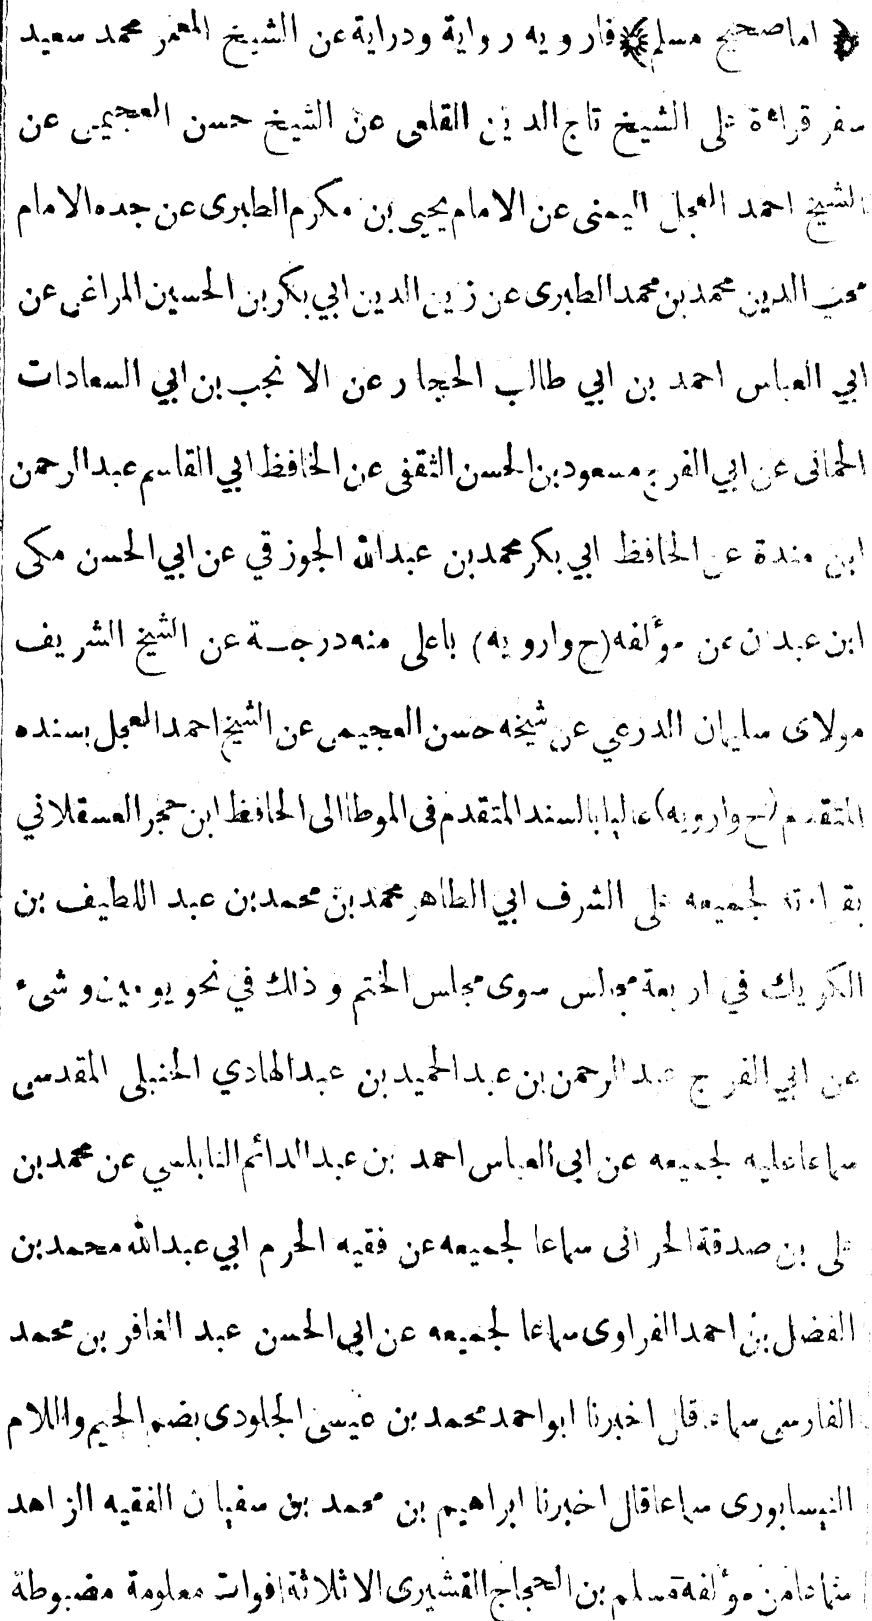 ﴿ اما صحيح مسلم ﴾ فارويه رواية ودراية عن الشيخ المعمر محمد سعيد
سفر قراءة على الشيخ تاج الدين القلعى عن الشيخ حسن العجيمى عن
الشيخ احمد العجل اليمنى عن الامام يحيى بن مكرم الطبرى عن جده الامام
محب الدين محمد بن محمد الطبرى عن زين الدين ابي بكر بن الحسين المراغى عن
ابي العباس احمد بن ابي طالب الحجار عن الانجب بن ابي السعادات
الحمانى عن ابي الفرج مسعود بن الحسن الثقفى عن الحافظ ابي القاسم عبد الرحمن
ابن مندة عن الحافظ ابي بكر محمد بن عبد الله الجوزقي عن ابي الحسن مكى
ابن عبدان عن مؤلفه (ح وارويه) باعلى منه درجة عن الشيخ الشريف
مولاى سليمان الدرعي عن شيخه حسن العجيمى عن الشيخ احمد العجل بسنده
المتقدم (ح وارويه) عاليا بالسند المتقدم فى الموطا الى الحافظ ابن حجر العسقلاني
بقراءته لجميعه على الشرف ابي الطاهر محمد بن محمد بن عبد اللطيف بن
الكويك في اربعة مجالس سوى مجلس الختم وذلك في نحو يومين وشىء
عن ابي الفرج عبد الرحمن بن عبد الحميد بن عبد الهادي الحنبلى المقدسى
سماعا عليه لجميعه عن ابى العباس احمد بن عبد الدائم النابلسي عن محمد بن
على بن صدقة الحرانى سماعا لجميعه عن فقيه الحرم ابي عبد الله محمد بن
الفضل بن احمد الفراوى سماعا لجميعه عن ابي الحسن عبد الغافر بن محمد
الفارسى سماعا قال اخبرنا ابو احمد محمد بن عيسى الجلودى بضم الجيم واللام
النيسابورى سماعا قال اخبرنا ابراهيم بن محمد بن سفيان الفقيه الزاهد
سماعا من مؤلفه مسلم بن الحجاج القشيرى الا ثلاثة افوات معلومة مضبوطة